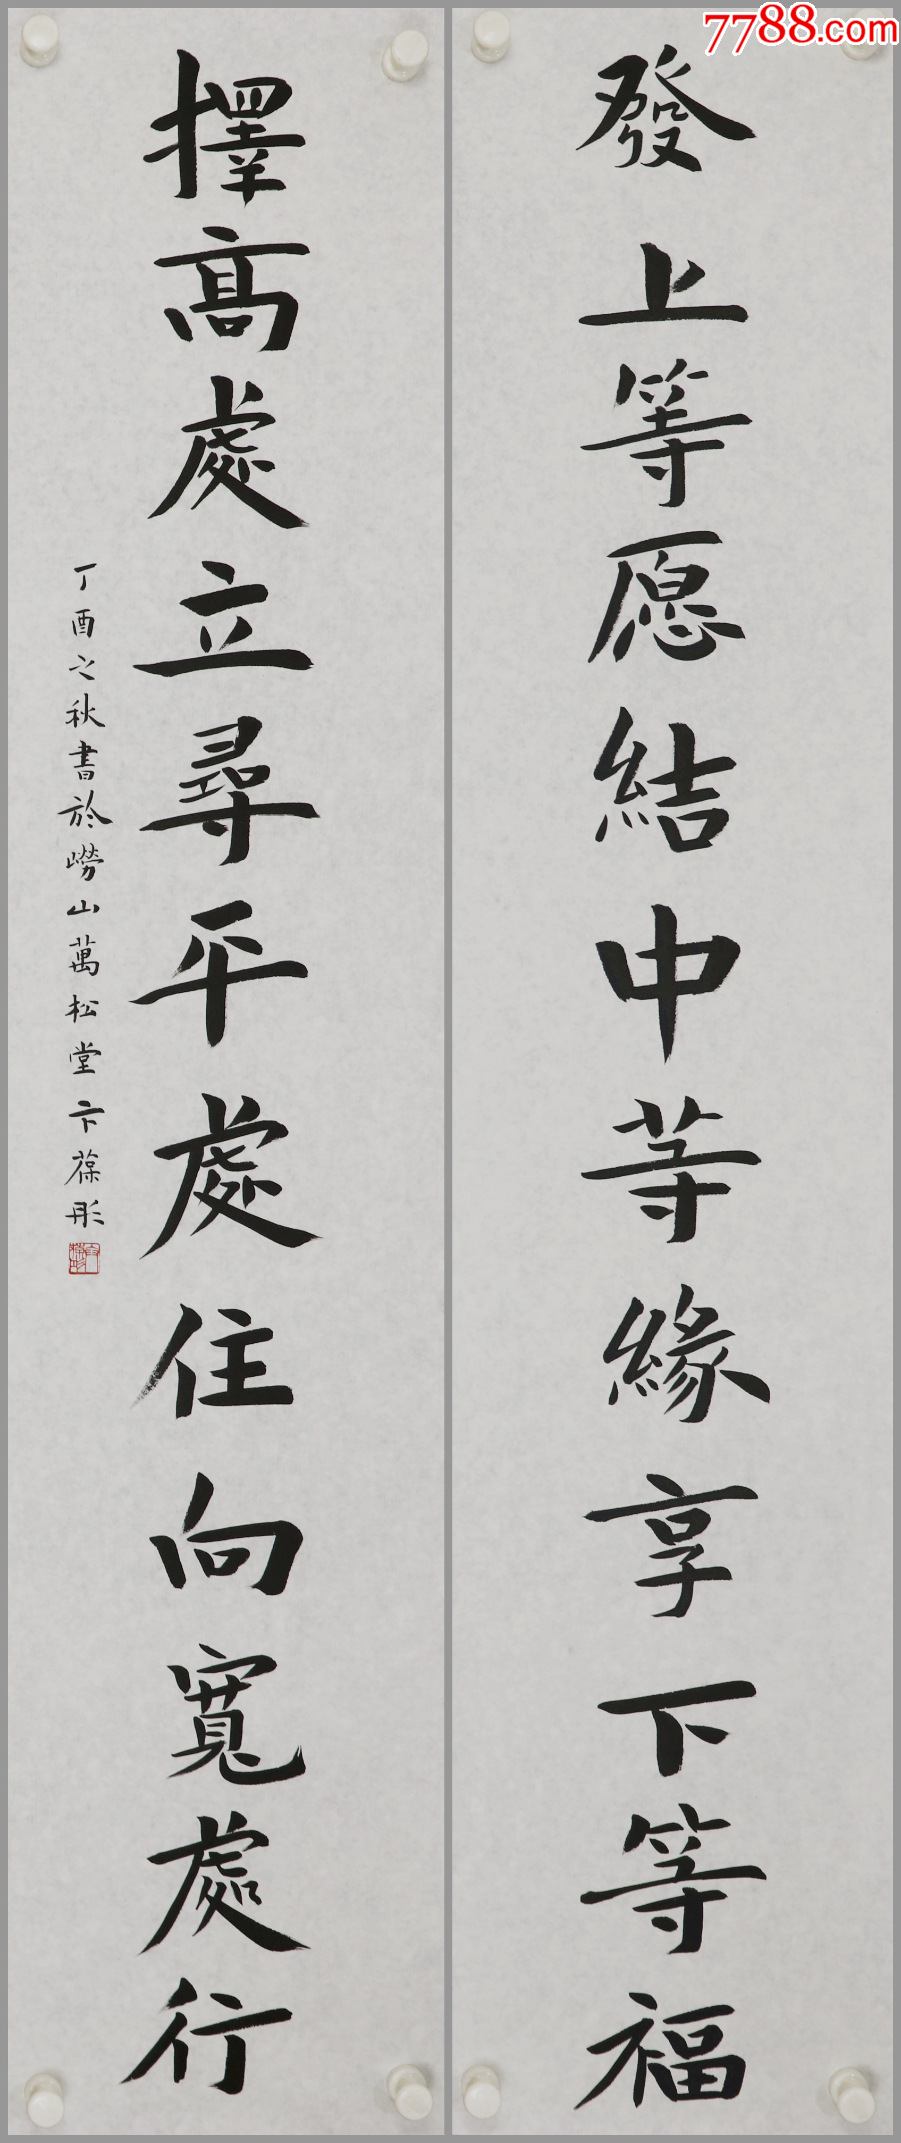 7788.com
發上等愿結中等緣享下等福
擇高處立尋平處住向寬處行
丁酉之秋書於嶗山萬松堂卞葆彤